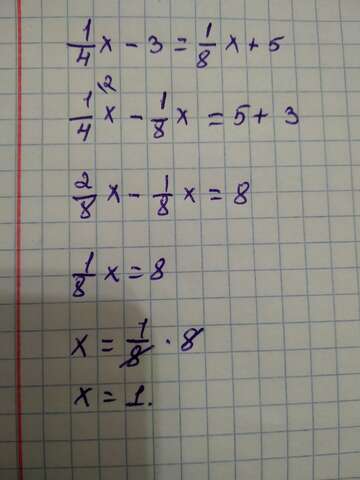 1/4 x - 3 = 1/8 x + 5
1/4 \2 x - 1/8 x = 5 + 3
2/8 x - 1/8 x = 8
1/8 x = 8
x = 1/8 · 8
x = 1.